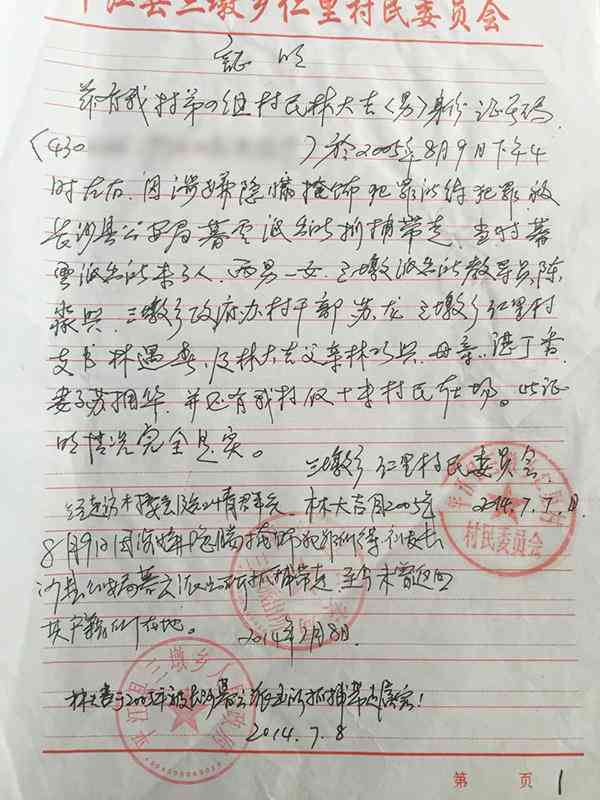 平江县三墩乡仁里村民委员会
证明
兹有我村第四组村民林大吉(男)身份证号码
(430 )於2005年8月9日下午4
时左右,因涉嫌隐瞒掩饰犯罪所得犯罪被
长沙县公安局暮云派出所抓捕带走,当时暮
云派出所来了3人,两男一女,三墩派出所教导员陈
兴、三墩乡政府办村干部苏龙、三墩乡仁里村
支书林遇,及林大吉父亲林 兴、母亲湛丁香、
妻子苏拥华,并还有我村 十来村民在场。此证
明情况完全属实。
三墩乡仁里村民委员会
2014.7.7日
林大吉自2005年
8月9日因涉嫌隐瞒掩饰犯罪所得 被长
沙县公安局暮云派出所抓捕带走,至今未曾返回
其户籍所在地。
2014年7月8日
林大吉于2005年被长沙暮云派出所抓捕带走属实!
2014.7.8
村民委员会
平江县三墩乡人民政府
第 页 1